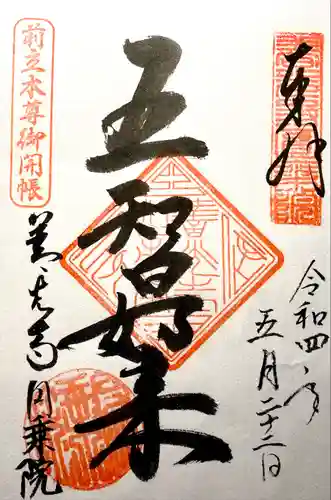 奉拝
令和四年
五月二十二日
五智如来
前立本尊御開帳
善光寺
圓乗院